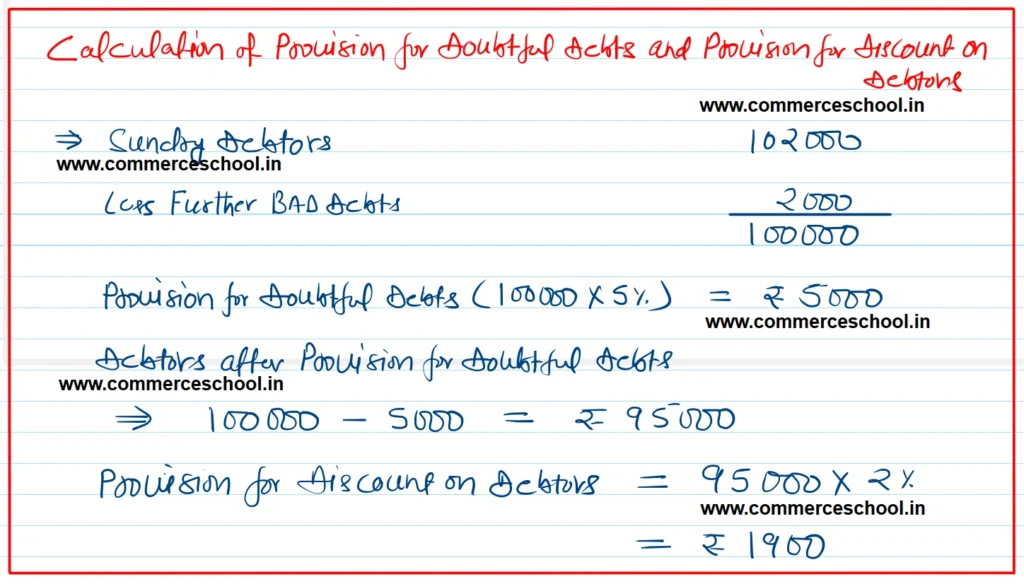 Calculation of Provision for Doubtful Debts and Provision for Discount on
Debtors
www.commerceschool.in
⇒ Sundry Debtors 102000
www.commerceschool.in
Less Further BAD Debts 2000
100000
Provision for Doubtful Debts (100000 X 5%) = ₹ 5000
www.commerceschool.in
Debtors after Provision for Doubtful Debts
www.commerceschool.in
⇒ 100000 - 5000 = ₹ 95000
Provision for Discount on Debtors = 95000 X 2%
www.commerceschool.in
= ₹ 1900